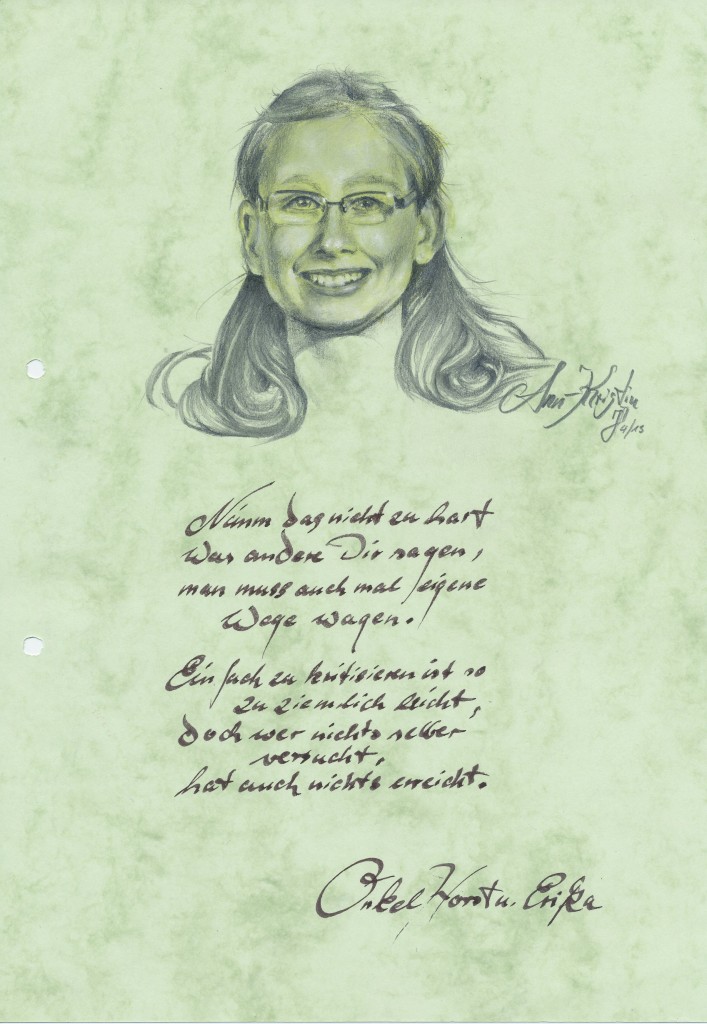 Ann-Kristin
4/15
Nimm das nicht zu hart
Was andere Dir sagen,
man muss auch mal eigene
Wege wagen.
Einfach zu kritisieren ist so
zu ziemlich leicht,
doch wer nichts selber
versucht,
hat auch nichts erreicht.
Onkel Horst u. Erika